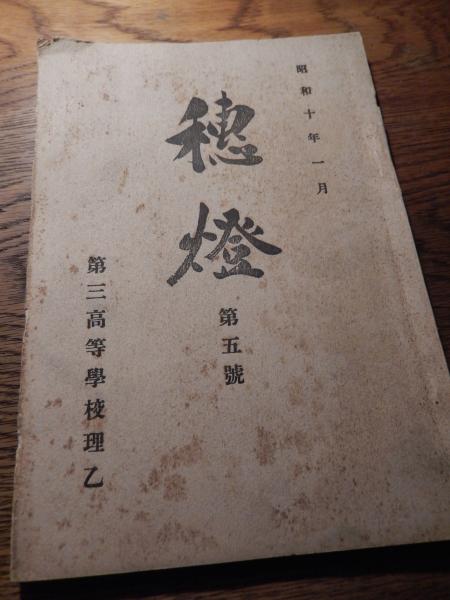 昭和十年一月
穂燈
第五號
第三高等學校理乙